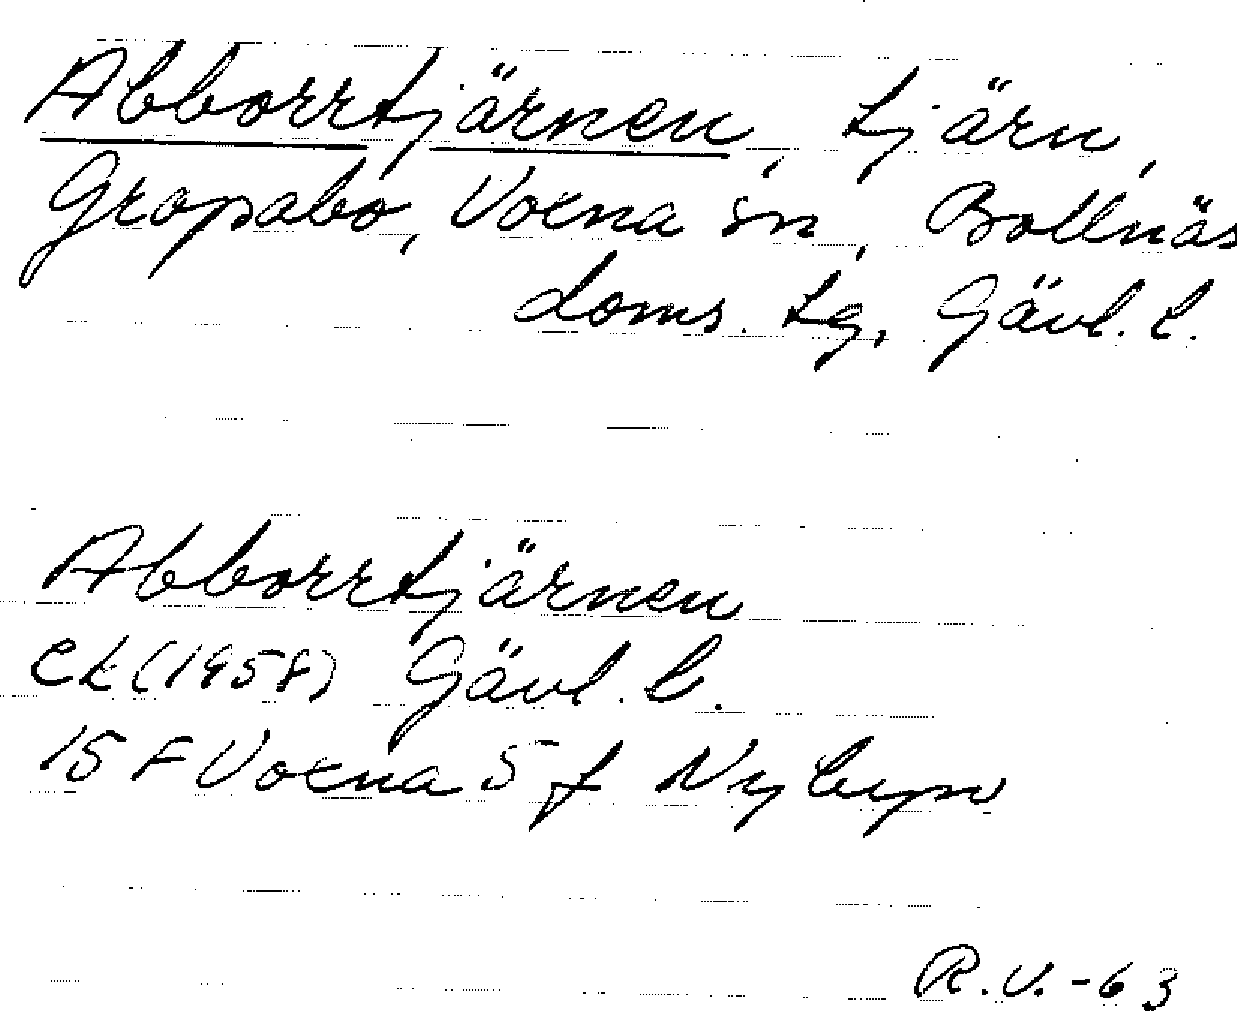 Abborrtjärnen, tjärn,
Gropabo, Voxna sn, Bollnäs
doms. tg, Gävl. l.
Abborrtjärnen
ek (1958) Gävl. l.
15 F Voxna 5 f Nybyn
R.V.-63